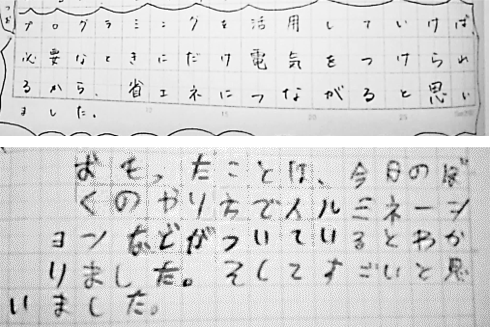 プログラミングを活用していけば、
必要なときにだけ電気をつけられ
るから、省エネにつながると思い
ました。
おもったことは、今日のぼ
くのやり方でイルミネーシ
ョンなどがついているとわか
りました。そしてすごいと思
いました。